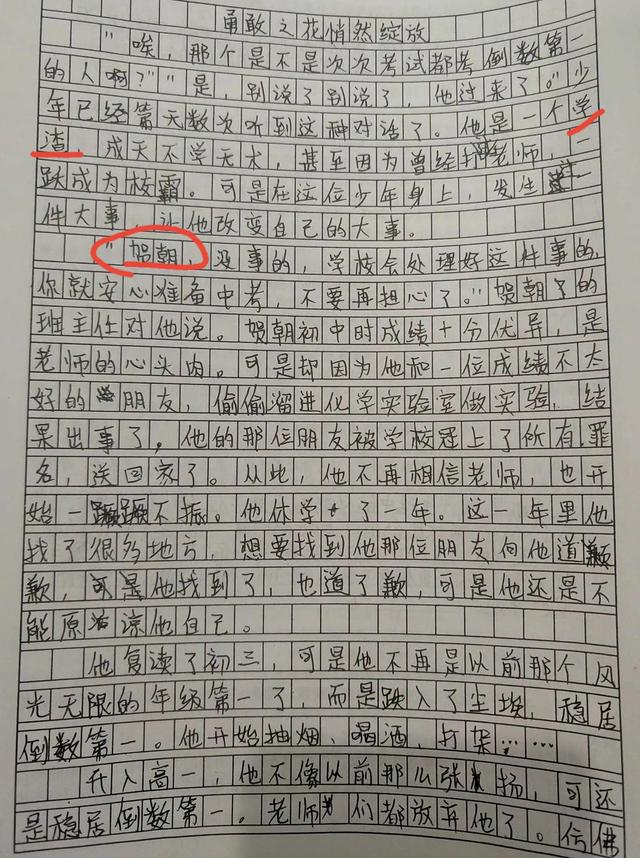 勇敢之花悄然绽放
"唉，那个是不是次次考试都考倒数第一
的人啊？""是，别说了别说了，他过来了。"少
年已经第无数次听到这种对话了。他是一个学
渣，成天不学无术，甚至因为曾经打老师，一
跃成为校霸。可是在这位少年身上，发生过一
件大事，让他改变自己的大事。
"贺朝，没事的，学校会处理好这件事的，
你就安心准备中考，不要再担心了。"贺朝的
班主任对他说。贺朝初中时成绩十分优异，是
老师的心头肉。可是却因为他和一位成绩不太
好的朋友，偷偷溜进化学实验室做实验，结
果出事了，他的那位朋友被学校冠上了所有罪
名，送回家了。从此，他不再相信老师，也开
始一蹶不振。他休学了一年。这一年里他
找了很多地方，想要找到他那位朋友向他道歉
歉，可是他找到了，也道了歉，可是他还是不
能原谅他自己。
他复读了初三，可是他不再是以前那个风
光无限的年级第一了，而是跌入了尘埃，稳居
倒数第一。他开始抽烟、喝酒，打架……
升入高一，他不像以前那么张扬，可还
是稳居倒数第一。老师们都放弃他了。仿佛